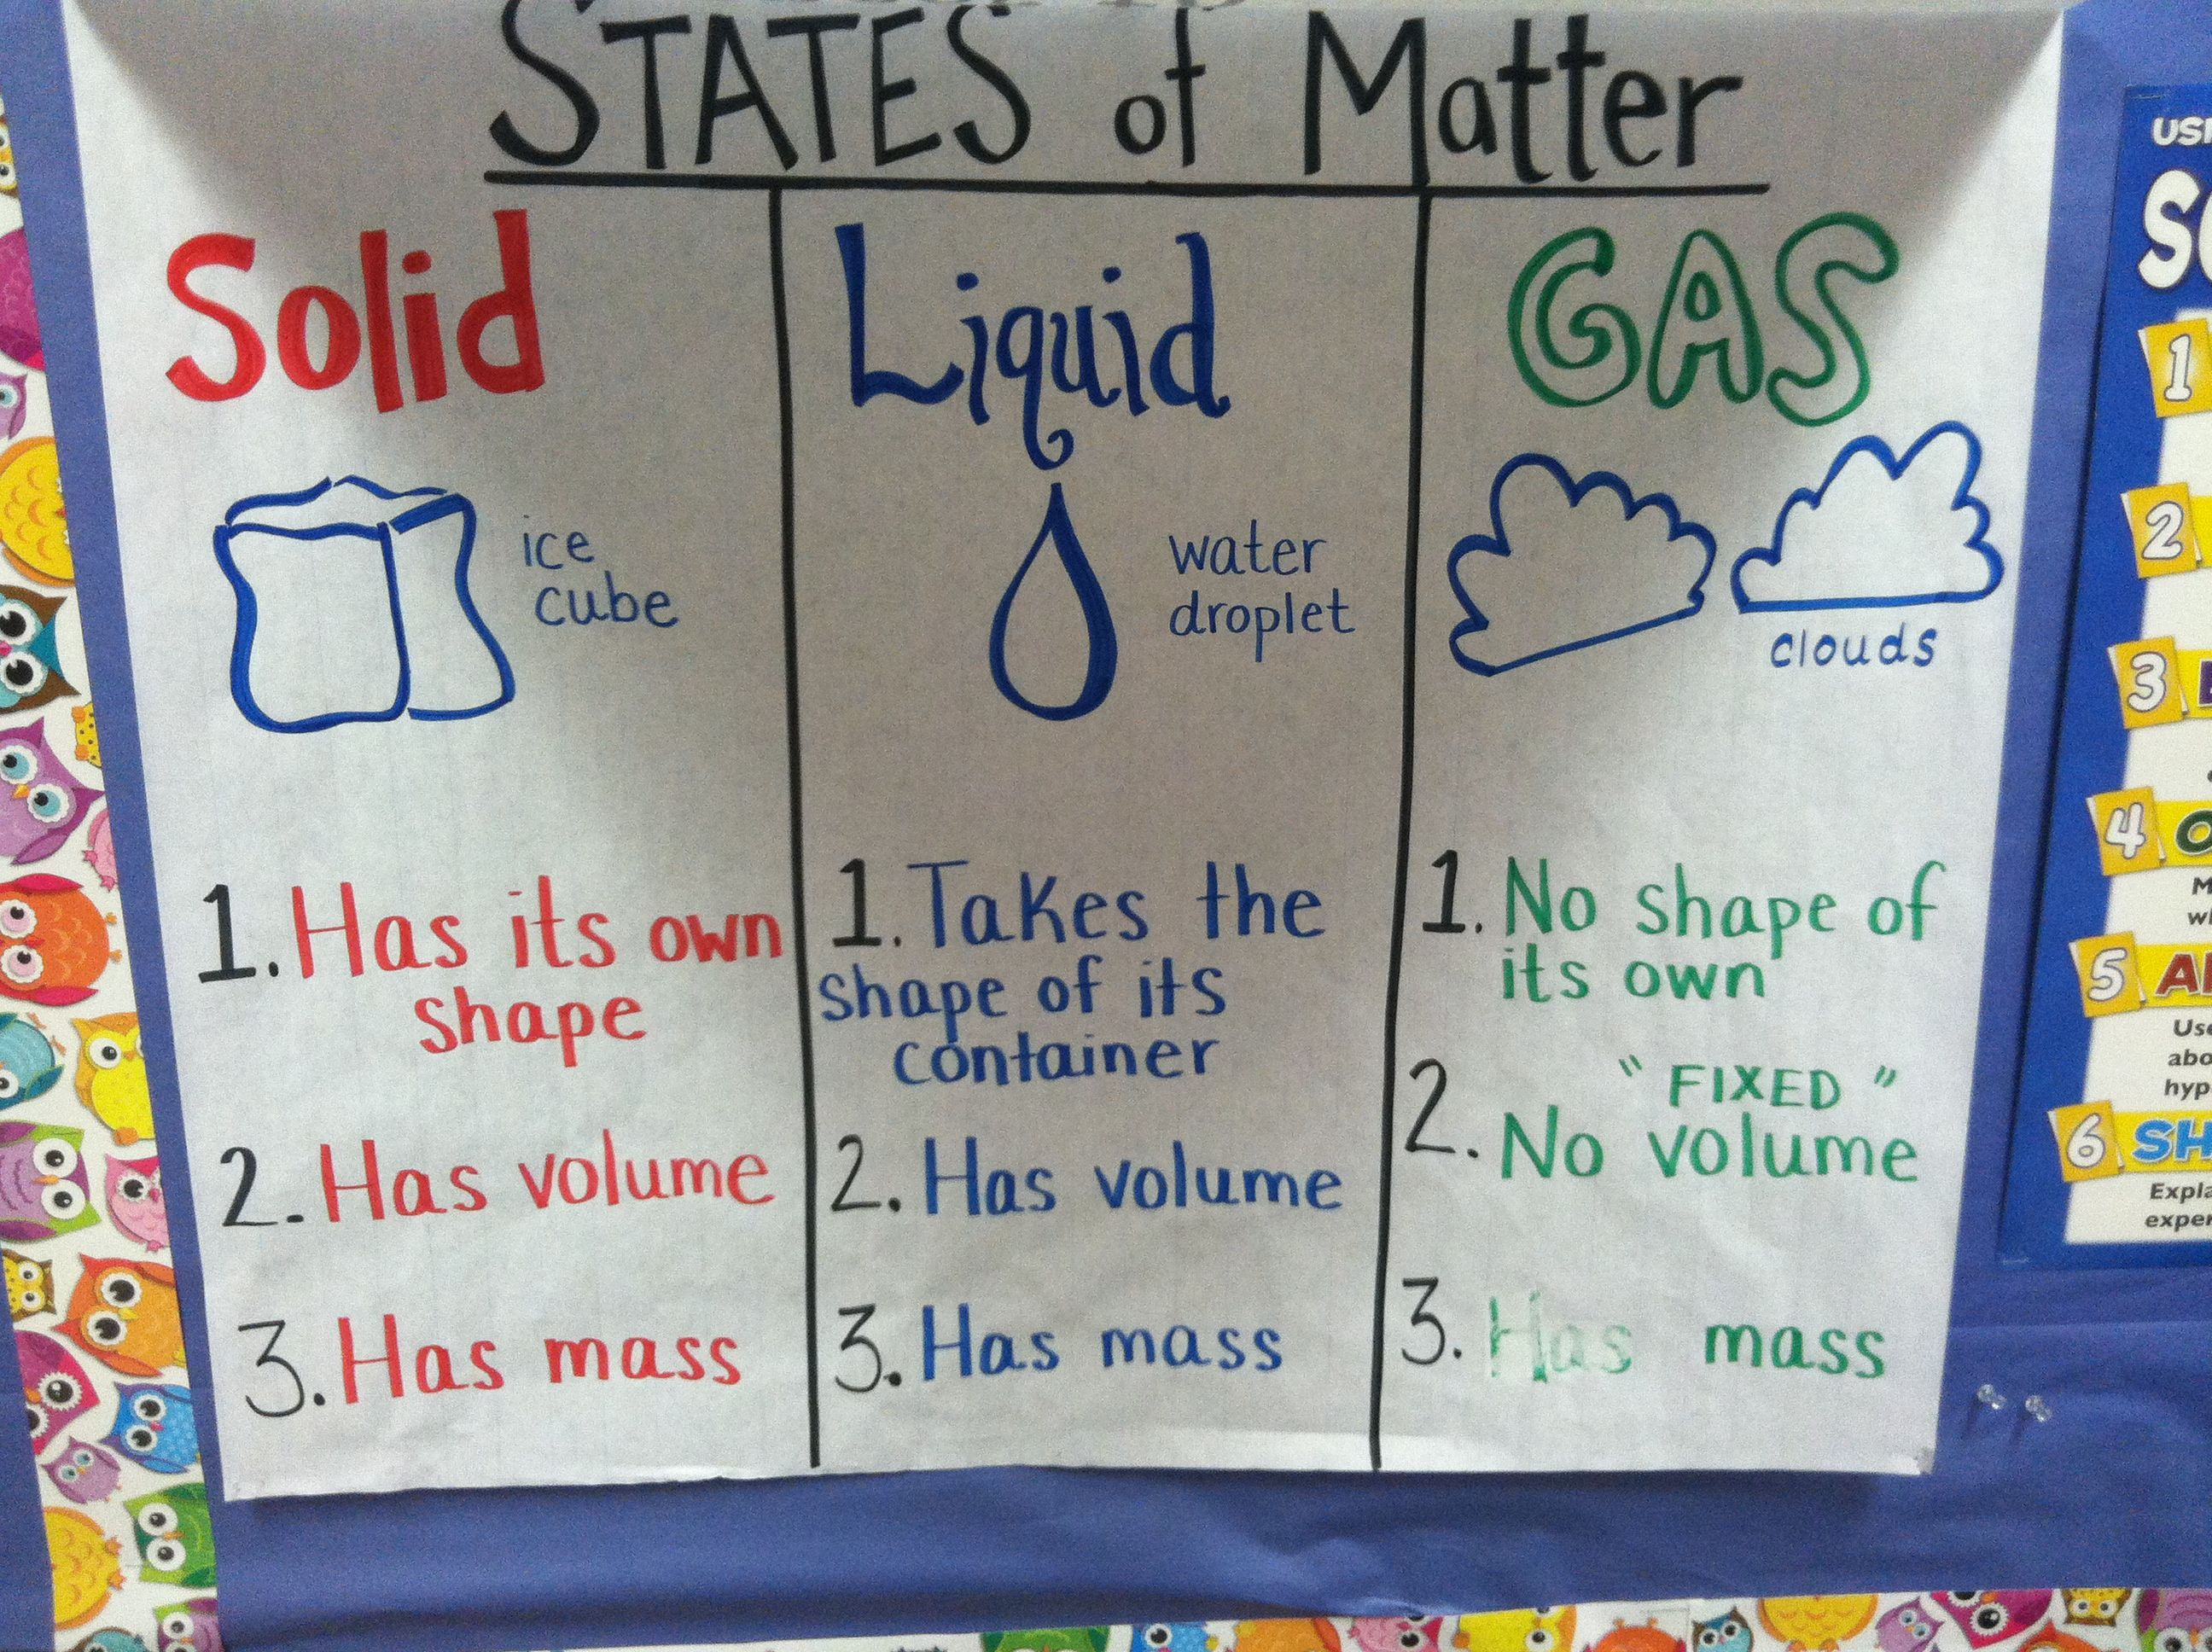 STATES of Matter
Solid
ice
cube
1. Has its own
shape
2. Has volume
3. Has mass
Liquid
water
droplet
1. Takes the
shape of its
container
2. Has volume
3. Has mass
GAS
clouds
1. No shape of
its own
"FIXED"
2. No volume
3. Has mass
1
2
3
4
5
Use
abo
hyp
6 SH
Expla
exper